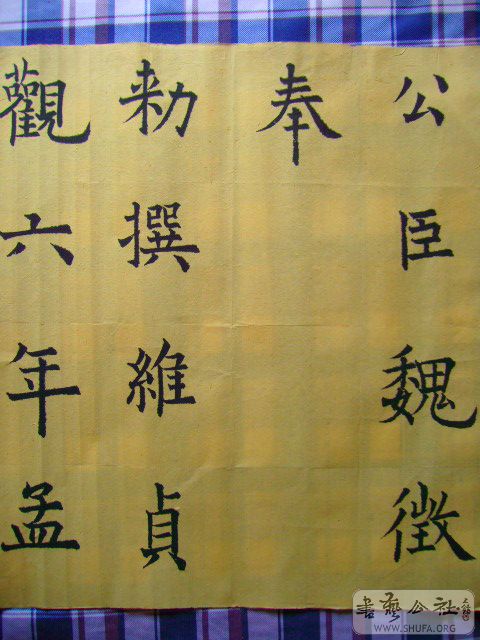 公臣魏徵
奉
勑撰維貞
觀六年孟
書藝公社
WWW.SHUFA.ORG